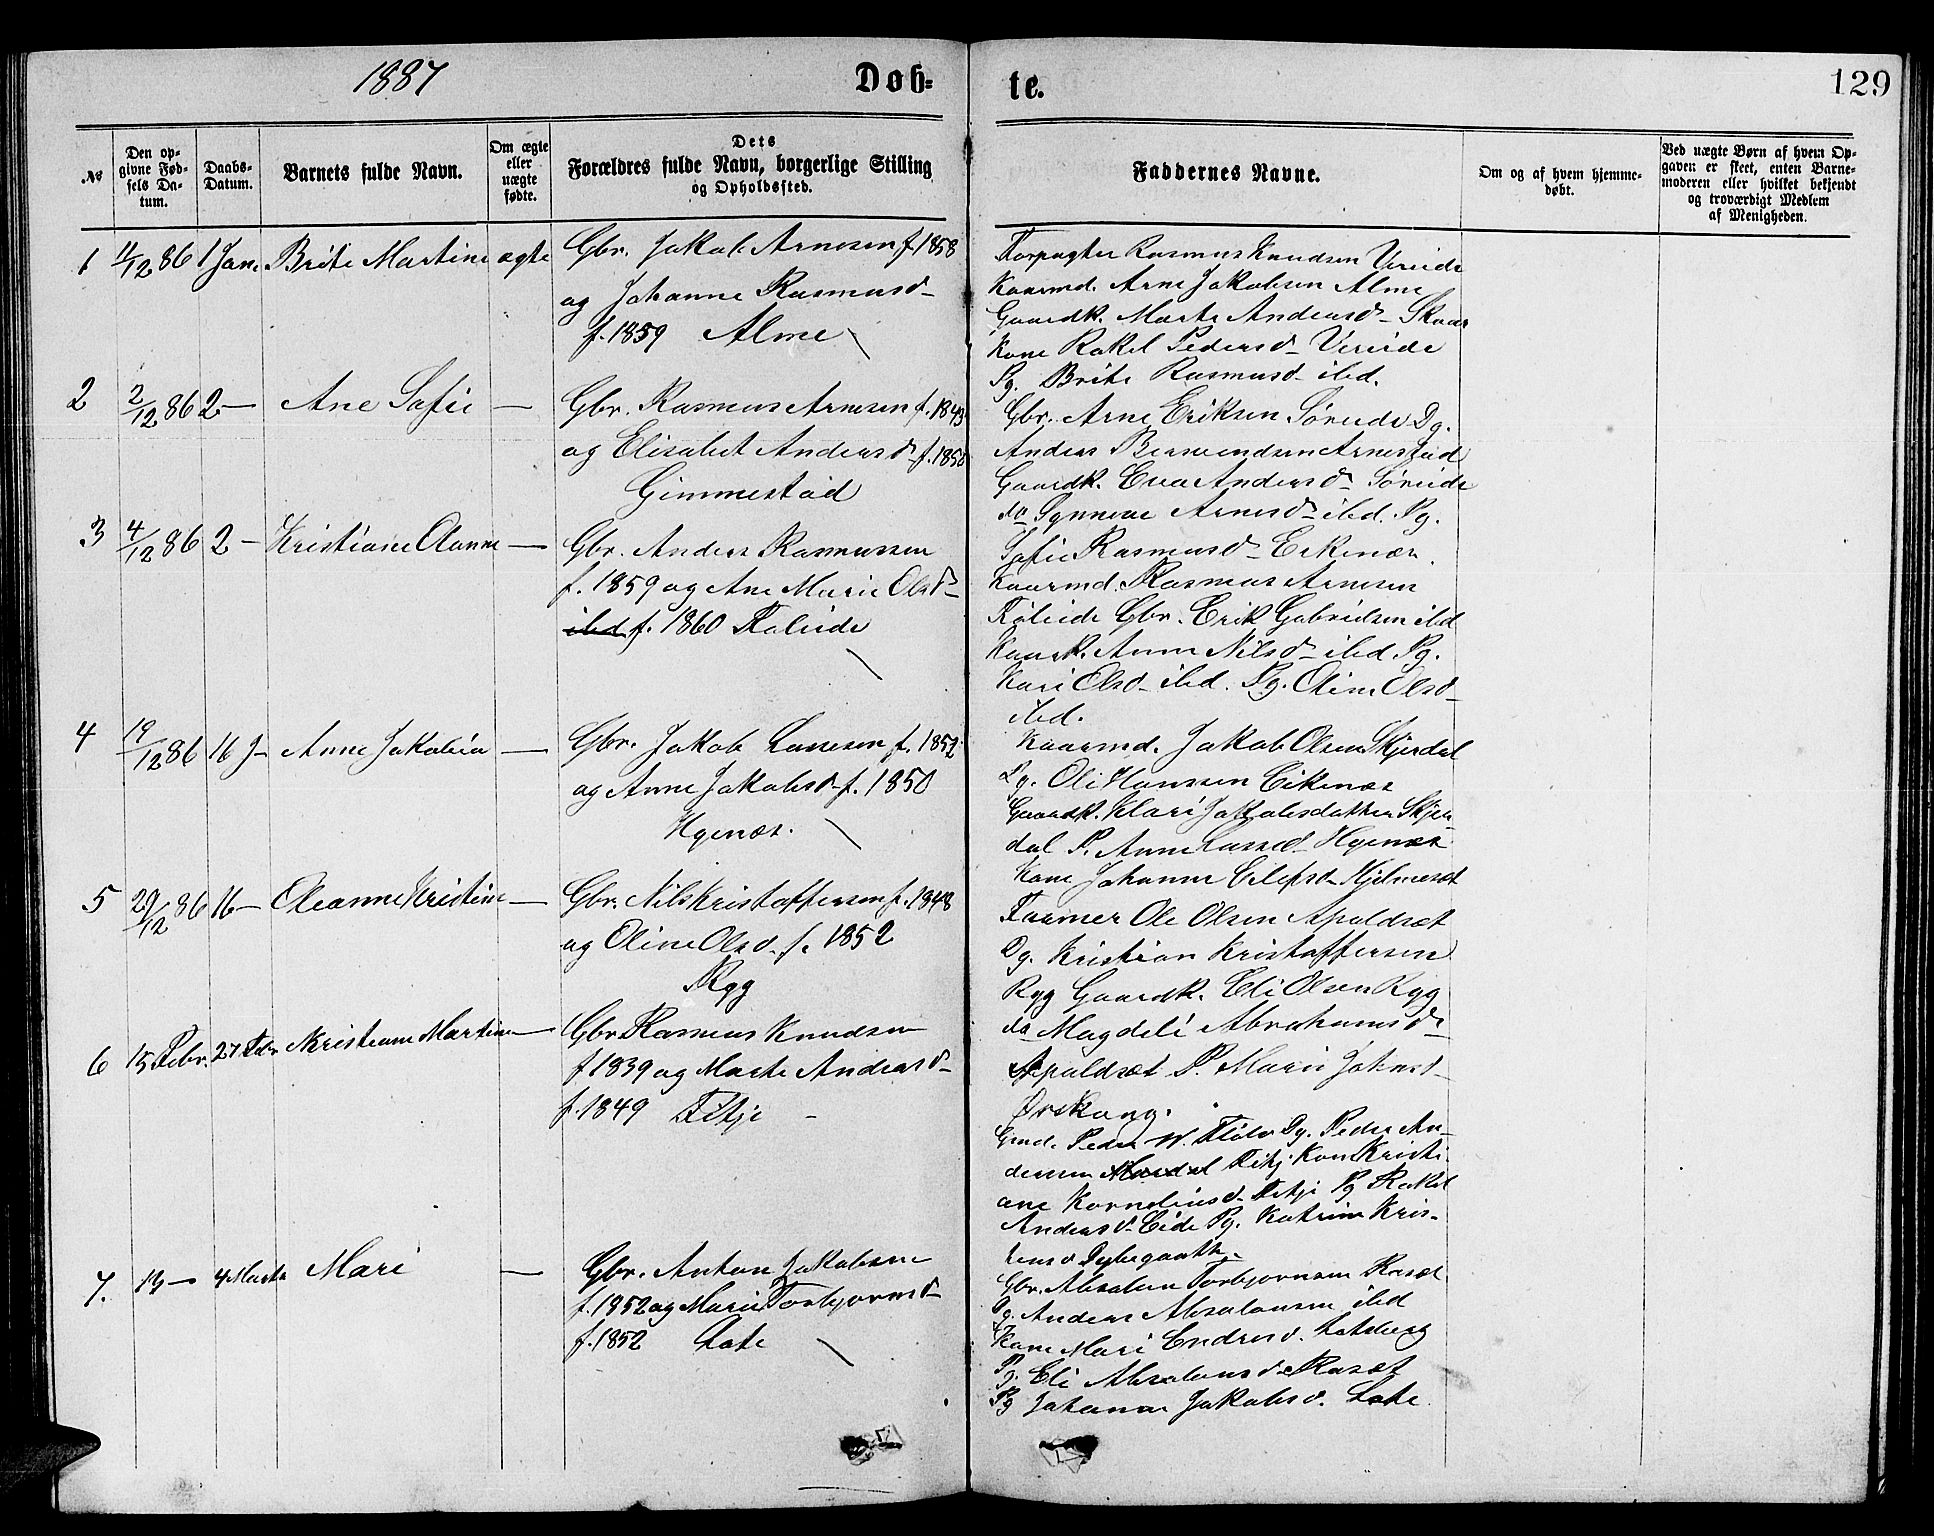 1887
Døb-
te.
129
№
Den op-
givne Fød-
sels Da-
tum.
Daabs-
Datum.
Barnets fulde Navn.
Om ægte
eller
uægte
fødte.
Dets
Forældres fulde Navn, borgerlige Stilling
og Opholdssted.
Faddernes Navne.
Om og af hvem hjemme-
døbt.
Ved uægte Børn af hvem Op-
gaven er skeet, enten Barne-
moderen eller hvilket bekjendt
og troværdigt Medlem
af Menigheden.
1 11/12 86 1 Jan. Brite Martine ægte
Gbr. Jakob Arnesen f 1858
og Johanne Rasmusd-
f. 1859 Alme
Forpagter Rasmus Knudsen Vereide
Kaarmd. Arne Jakobsen Alme
Gaardk. Marte Andersd- Skaar
Kone Rakel Pedersd- Vereide
Pg. Brite Rasmusd- ibd.
2 2/12 86 2 — Ane Sofie —
Gbr. Rasmus Arnesen f. 1843
og Elisabet Andersd- f. 1858
Gimmestad
Gbr. Arne Eriksen Søreide Dg.
Anders Arnestad
Gaardk. Eva Andersd- Søreide
do Synneve Arnesd- ibd. Pg.
Sofie Rasmusd- Eikenæs
3 4/12 86 2 — Kristiane Olanne —
Gbr. Anders Rasmussen
f. 1859 og Ane Marie Olsd-
ibd f. 1860 Røleide
Kaarmd. Rasmus Arnesen
Røleide Gbr. Erik Gabrielsen ibd
Kaark. Anne Nilsd- ibd. Pg.
Kari Olsd- ibd. Pg. Oline Olsd-
ibd.
4 19/12 86 16 J- Anne Jakobia —
Gbr. Jakob Larsesen f. 1852
og Anne Jakobsd- f. 1850
Hyenæs.
Kaarmd. Jakob Olsen Skjerdal
Dg. Ole Hanssen Eikenæs
Gaardk. Mari Jakobsdatter Skjer-
dal P. Anne Larsd- Hyenæs
Kone Johanne Eilefsd- Hjelmeset
5 29/12 86 16 — Oleanne Kristine —
Gbr. Nils Kristoffersen f. 1848
og Oline Olsd- f. 1852
Ryg
Farmer Ole Olsen Apaldsæt
Dg. Kristian Kristoffersen
Ryg Gaardk. Eli Olsen Ryg
do Magdeli Abrahamsd-
Apaldsæt P. Marie Johnsd-
Ørskaug.
6 15 Febr. 27 Febr Kristiane Martine —
Gbr. Rasmus Knudsen
f 1839 og Marte Andersd-
f. 1849 Fitje -
Gmd. Peder W. Fløtre Dg. Peder An-
dersen Fitje Kone Kristi-
ane Korneliusd- Fitje Pg Rakel
Andersd- Eide Pg. Katrine Kris-
tensd
7. 19 — 4 Marts Mari —
Gbr. Anton Jakobsen
f. 1852 og Marie Torbjørnsd-
f. 1852 Lote
Gbr. Absalon Torbjørnsen Raset
Pg. Anders Absalonsen ibd
Kone Mari Endresd. Lotsberg
Pg. Eli Absalonsd- Rasæt
Pg Johanne Jakobsd. Lote